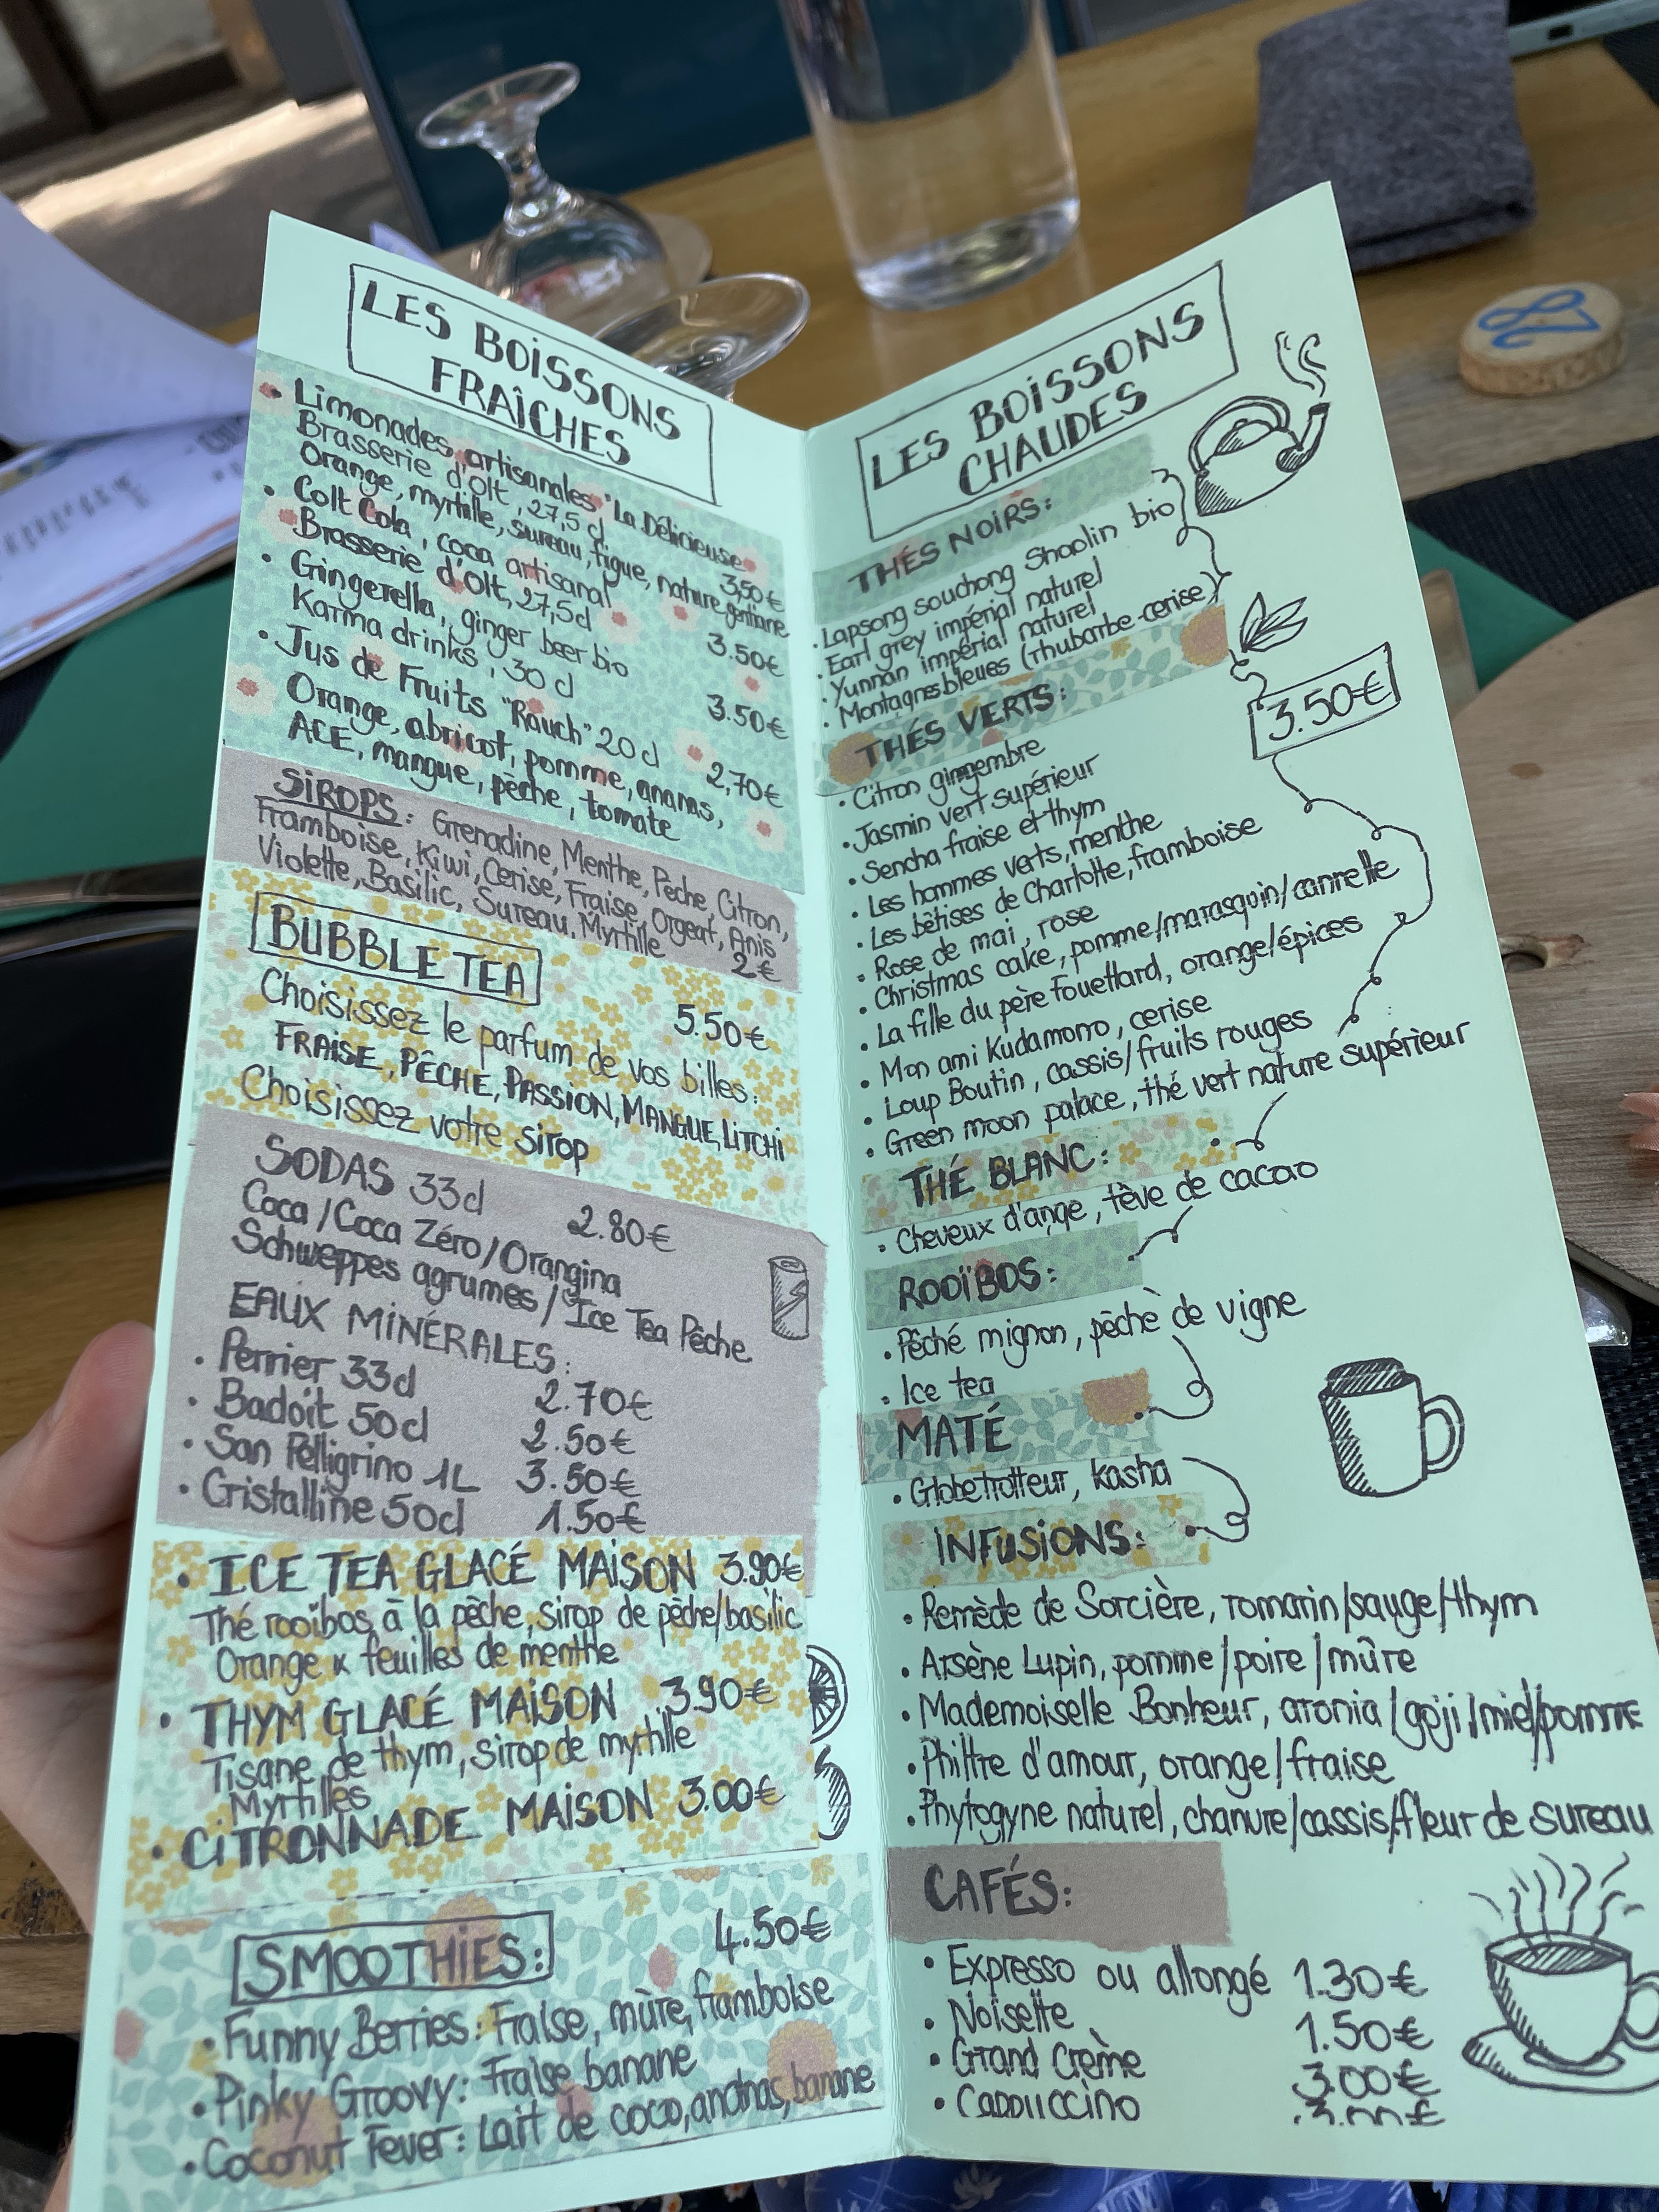 LES BOISSONS
FRAÎCHES
• Limonades artisanales "La Délicieuse"
Brasserie d'Olt, 27,5 cl
3,50€
Orange, myrtille, sureau, figue, nature, gentiane
• Colt Cola, coca artisanal
Brasserie d'Olt, 27,5cl
3.50€
• Gingerella, ginger beer bio
Karma drinks, 30 cl
3.50€
• Jus de Fruits "Rauch" 20cl
2,70€
Orange, abricot, pomme, ananas,
ACE, mangue, pêche, tomate
SIROPS: Grenadine, Menthe, Pêche, Citron,
Framboise, Kiwi, Cerise, Fraise, Orgeat, Anis
Violette, Basilic, Sureau, Myrtille
2€
BUBBLE TEA
5.50€
Choisissez le parfum de vos billes:
FRAISE, PÊCHE, PASSION, MANGUE, LITCHI
Choisissez votre sirop
SODAS 33cl
2.80€
Coca/Coca Zéro/Orangina
Schweppes agrumes/Ice Tea Pêche
EAUX MINÉRALES:
• Perrier 33cl 2.70€
• Badoit 50cl 2.50€
• San Pelligrino 1L 3.50€
• Cristalline 50cl 1.50€
• ICE TEA GLACÉ MAISON 3.90€
Thé rooïbos à la pêche, sirop de pêche/basilic
Orange x feuilles de menthe
• THYM GLACÉ MAISON 3.90€
Tisane de thym, sirop de myrtille
Myrtilles
• CITRONNADE MAISON 3.00€
SMOOTHIES: 4.50€
• Funny Berries: Fraise, mûre, framboise
• Pinky Groovy: Fraise banane
• Coconut Fever: Lait de coco, ananas, banane
LES BOISSONS
CHAUDES
THÉS NOIRS:
• Lapsong souchong Shaolin bio
• Earl grey impérial naturel
• Yunnan impérial naturel
• Montagnes bleues (rhubarbe-cerise)
THÉS VERTS:
3.50€
• Citron gingembre
• Jasmin vert supérieur
• Sencha fraise et thym
• Les hommes verts, menthe
• Les bêtises de Charlotte, framboise
• Rose de mai, rose
• Christmas cake, pomme/marasquin/cannelle
• La fille du père Fouettard, orange/épices
• Mon ami Kudamono, cerise
• Loup Boutin, cassis/fruits rouges
• Green moon palace, thé vert nature supérieur
THÉ BLANC:
• Cheveux d'ange, fève de cacao
ROOÏBOS:
• Pêché mignon, pêche de vigne
• Ice tea
MATÉ
• Globetrotteur, kasha
INFUSIONS:
• Remède de Sorcière, romarin/sauge/thym
• Arsène Lupin, pomme/poire/mûre
• Mademoiselle Bonheur, aronia/goji/miel/pomme
• Philtre d'amour, orange/fraise
• Phytogyne naturel, chanvre/cassis/fleur de sureau
CAFÉS:
• Expresso ou allongé 1.30€
• Noisette 1.50€
• Grand Crème 3.00€
• Cappuccino 3.00€